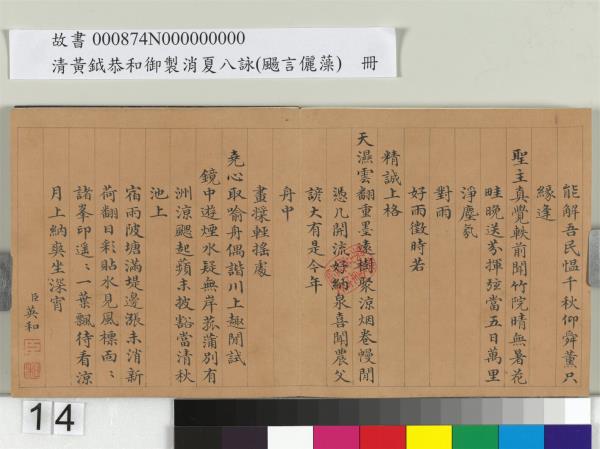 故書 000874N000000000
清黃鉞恭和御製消夏八詠(颺言儷藻) 冊
能解吾民慍千秋仰舜薰只
緣逢
聖主真覺軼前聞竹院晴無暑花
畦晚送芬揮弦當五日萬里
淨塵氛
對雨
好雨徵時若
精誠上格
天濕雲翻重墨遠樹聚涼烟卷幔閒
憑几開流好納泉喜聞農父
諺大有是今年
舟中
畫槳輕搖處
堯心取喻舟偶諧川上趣閒試
鏡中遊煙水疑無岸菰蒲別有
洲涼颸起蘋末披豁當清秋
池上
宿雨陂塘滿堤邊漲未消新
荷翻日彩貼水見風標面面
諸峯印遙遙一葉飄待看涼
月上納爽坐深宵
臣英和
14